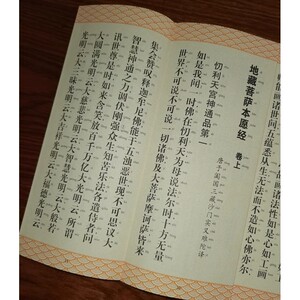 画诸世间五蕴悉从生无法而不造如心佛亦尔
地藏菩萨本愿经 卷上
忉利天宫神通品第一
唐于阗国三藏沙门实叉难陀译
如是我闻一时佛在忉利天为母说法尔时十方无量
世界不可说不可说一切诸佛及大菩萨摩诃萨皆来
集会赞叹释迦牟尼佛能于五浊恶世现不可思议大
智慧神通之力调伏刚强众生知苦乐法各遣侍者问
讯世尊是时如来含笑放百千万亿大光明云所谓
大圆满光明云大慈悲光明云大智慧光明云大般若
光明云大三昧光明云大吉祥光明云大福德光明云